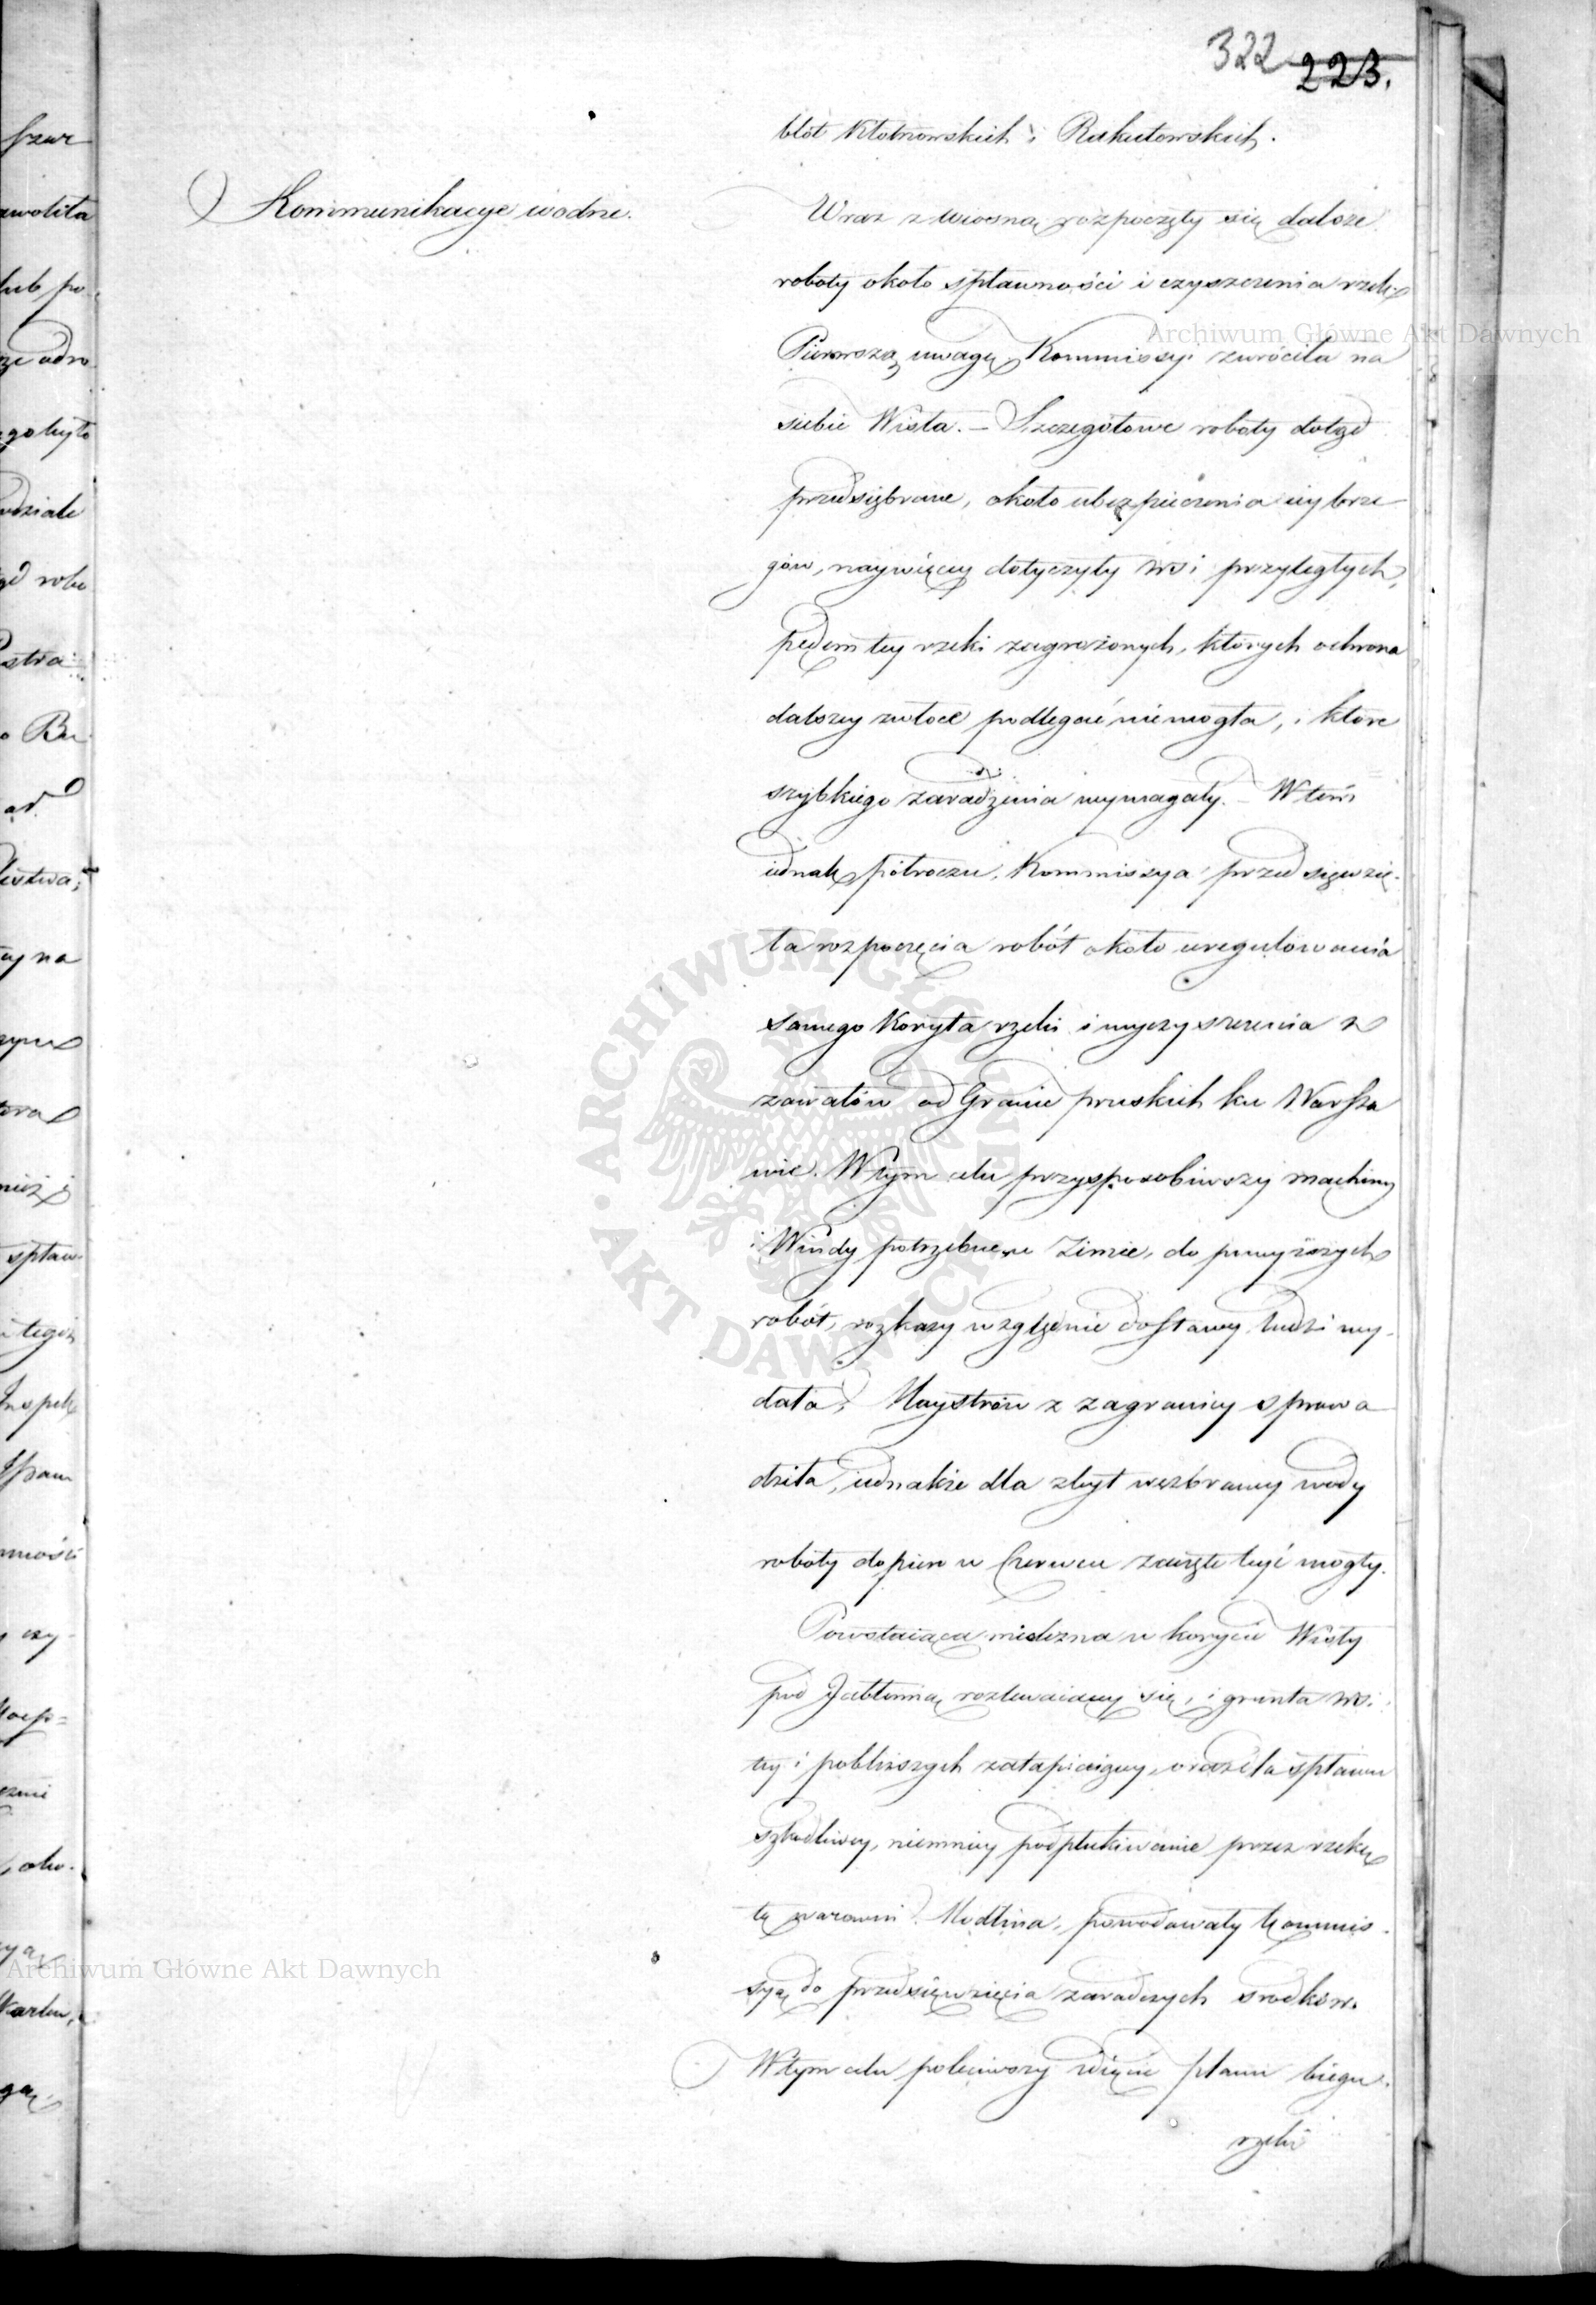 322 223.
błót Kłotnowskich i Rakutowskich.
Kommunikacye wodne.
Wraz z wiosną rozpoczęły się dalsze
roboty około spławności i czyszczenia rzek.
Pierwszą uwagę Kommissyi zwróciła na
siebie Wisła. – Szczegółowe roboty dotąd
przedsiębrane, około ubezpieczenia wybrze-
gów, naywięcey dotyczyły wsi przyległych,
pędem tey rzeki zagrożonych, których ochrona
dalszey zwłoce podlegać niemogła, i które
szybkiego zaradzenia wymagały. – W tem
iednak półroczu, Kommissya przedsięwzię-
ła rozpoczęcia robót około uregulowania
samego Koryta rzeki i wyczyszczenia z
zawałów od Granic pruskich ku Warsza
wie. W tym celu przysposobiwszy machiny
i Windy potrzebne w Zimie, do powyższych
robót, rozkazy względnie dostawy ludzi wy-
dała, Maystrów z zagranicy sprowa
dziła, iednakże dla zbyt wezbraney wody
roboty dopiero w Czerwcu zaczęte być mogły.
Powstaiąca mielizna w korycie Wisły
pod Jabłonną rozlewaiącey się, i grunta wsi
tey i pobliższych zatapiaiącey, oraz dla spławu
szkodliwey, niemniey podpłukiwanie przez rzekę
tę warowni Modlina, powodowały Kommis-
syą do przedsięwzięcia zaradczych srodków.
W tym celu poleciwszy zdięcie planu biegu
rzeki
Archiwum Główne Akt Dawnych
Archiwum Główne Akt Dawnych
ARCHIWUM GŁÓWNE · AKT DAWNYCH ·